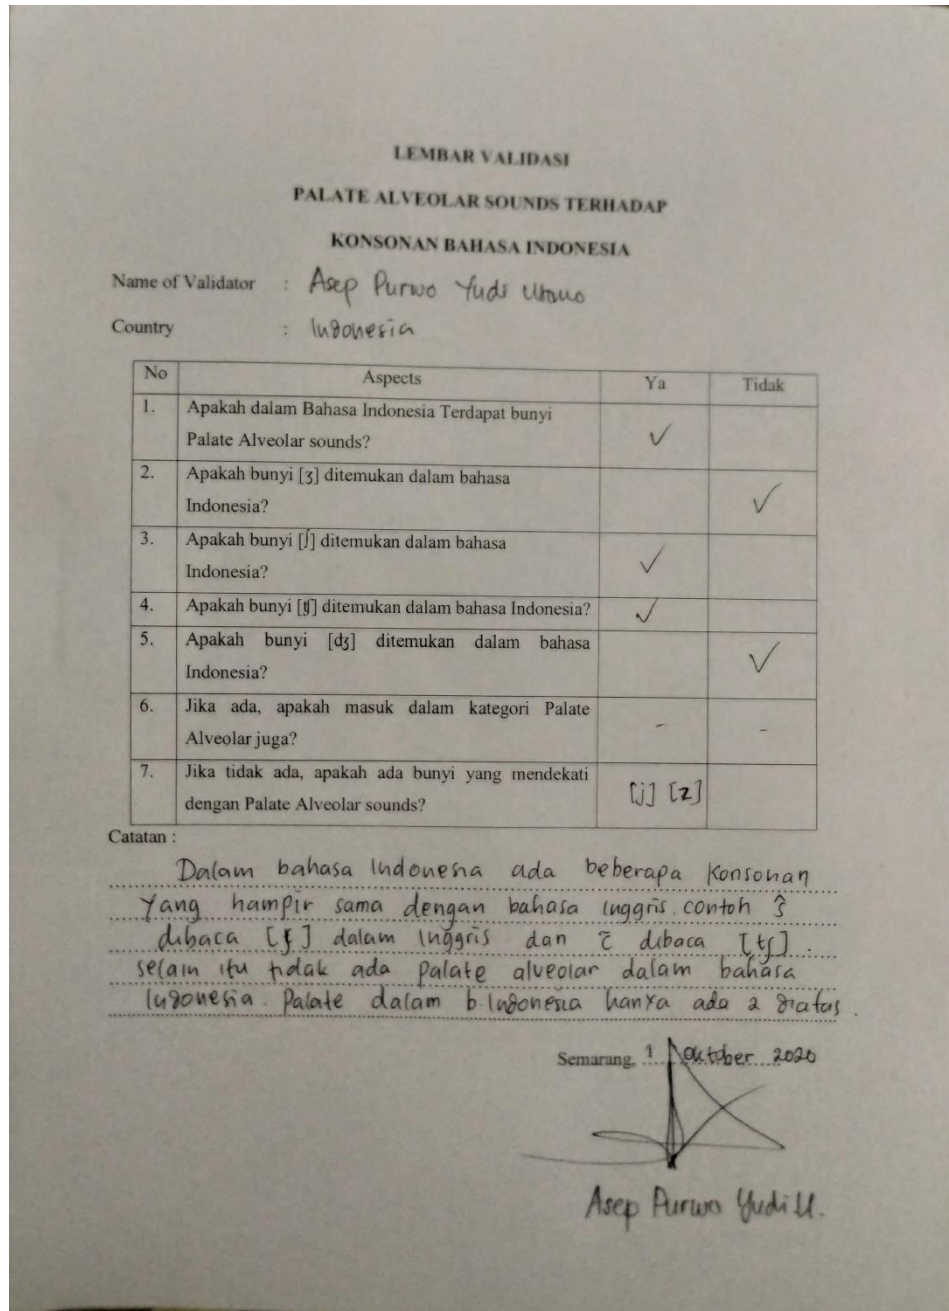 LEMBAR VALIDASI
PALATE ALVEOLAR SOUNDS TERHADAP
KONSONAN BAHASA INDONESIA
Name of Validator : Asep Purwo Yudi Utomo
Country : Indonesia
No Aspects Ya Tidak
1. Apakah dalam Bahasa Indonesia Terdapat bunyi
Palate Alveolar sounds? ✓
2. Apakah bunyi [ʒ] ditemukan dalam bahasa
Indonesia? ✓
3. Apakah bunyi [ʃ] ditemukan dalam bahasa
Indonesia? ✓
4. Apakah bunyi [ʧ] ditemukan dalam bahasa Indonesia? ✓
5. Apakah bunyi [dʒ] ditemukan dalam bahasa
Indonesia? ✓
6. Jika ada, apakah masuk dalam kategori Palate
Alveolar juga? - -
7. Jika tidak ada, apakah ada bunyi yang mendekati
dengan Palate Alveolar sounds? [j] [z]
Catatan :
Dalam bahasa Indonesia ada beberapa konsonan
yang hampir sama dengan bahasa inggris. contoh
dibaca [ʃ] dalam inggris dan dibaca [tʃ].
selain itu tidak ada palate alveolar dalam bahasa
Indonesia. Palate dalam b. Indonesia hanya ada 2 diatas.
Semarang, 1 Oktober 2020
Asep Purwo Yudi U.